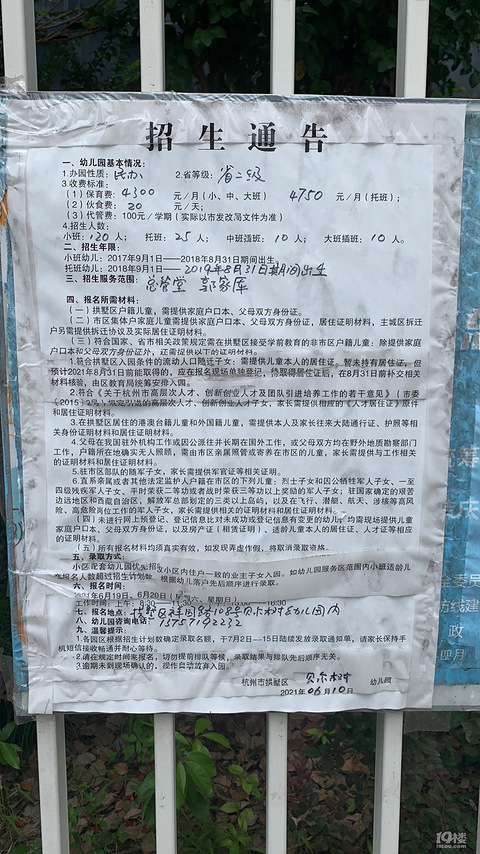 招生通告
一、幼儿园基本情况:
1.办园性质: 民办 2.省等级: 省二级
3.收费标准:
(1)保育费: 4300 元/月(小、中、大班) 4750 元/月(托班);
(2)伙食费: 20 元/天;
(3)代管费: 100元/学期(实际以市发改局文件为准)
4.招生人数:
小班: 120人; 托班: 25人; 中班插班: 10人; 大班插班: 10人。
二、招生年限:
小班幼儿: 2017年9月1日——2018年8月31日期间出生。
托班幼儿: 2018年9月1日——2019年8月31日期间出生
三、招生服务范围: 总管堂 郭家厍
四、报名所需材料:
(一)拱墅区户籍儿童,需提供家庭户口本、父母双方身份证。
(二)市区集体户家庭儿童需提供家庭户口本、父母双方身份证,居住证明材料,主城区拆迁
户另需提供拆迁协议及实际居住证明材料。
(三)符合国家、省市相关政策规定需在拱墅区接受学前教育的非市区户籍儿童:除提供家庭
户口本和父母双方身份证外,还需提供以下的证明材料:
1.符合拱墅区入园条件的流动人口随迁子女:需提供儿童本人的居住证。暂未持有居住证,但
预计2021年8月31日前能取得的,应在报名现场单独登记,待取得居住证后,在8月31日前补交相关
材料核验,由区教育局统筹安排入园。
2.符合《关于杭州市高层次人才、创新创业人才及团队引进培养工作的若干意见》(市委
〔2015〕2号)规定引进的高层次人才、创新创业人才子女,家长需提供相应的《人才居住证》原件
和居住证明材料。
3.在拱墅区居住的港澳台籍儿童和外国籍儿童,需提供本人及家长往来大陆通行证、护照等相
关身份证明材料和居住证明材料。
4.父母在我国驻外机构工作或因公派往并长期在国外工作,或父母双方均在野外地质勘察部门
工作,户籍所在地确实无人照顾,需由市区亲属照管或寄养在市区的儿童,家长需提供与工作相关
的证明材料和居住证明材料。
5.驻市区部队的随军子女,家长需提供军官证等相关证明。
6.直系亲属或者其他法定监护人户籍在市区的下列儿童:烈士子女和因公牺牲军人子女、一至
四级残疾军人子女、平时荣获二等功或者战时荣获三等功以上奖励的军人子女、驻国家确定的艰苦
边远地区和西藏自治区,解放军总部划定的三类以上岛屿,以及在飞行、潜艇、航天、涉核等高风
险、高危险岗位工作的军人子女,家长需提供相关的证明材料和居住证明材料。
(四)未进行网上预登记、登记信息比对未成功或登记信息有变更的幼儿,均需现场提供儿童
家庭户口本、父母双方身份证,以及房产证(租赁证明)、适龄儿童本人的居住证、人才证等相应
的证明材料。
(五)所有报名材料均须真实有效,如发现弄虚作假,将取消录取资格。
五、录取方式:
小区配套幼儿园优先招收小区内住户一致的业主子女入园。如幼儿园服务区范围内小班适龄儿
童报名人数超过招生计划数,根据幼儿落户先后顺序进行录取。
六、报名时间:
2021年6月19日、6月20日(星期六、星期日)
工作时间:上午:8:30
七、报名地点: 拱墅区科园路108号贝尔树幼儿园内
八、幼儿园咨询电话: 13757192232
九、温馨提示:
1.各园区根据招生计划数确定录取名额,于7月2日—15日陆续发放录取通知单,请家长保持手
机短信接收畅通并耐心等待。
2.请在规定时间来报名,切勿提前排队等候,录取结果与排队先后顺序无关。
3.逾期未到现场确认的,操作自动放弃入园。
杭州市拱墅区 贝尔树 幼儿园
2021年06月10日
19楼
19lou.com